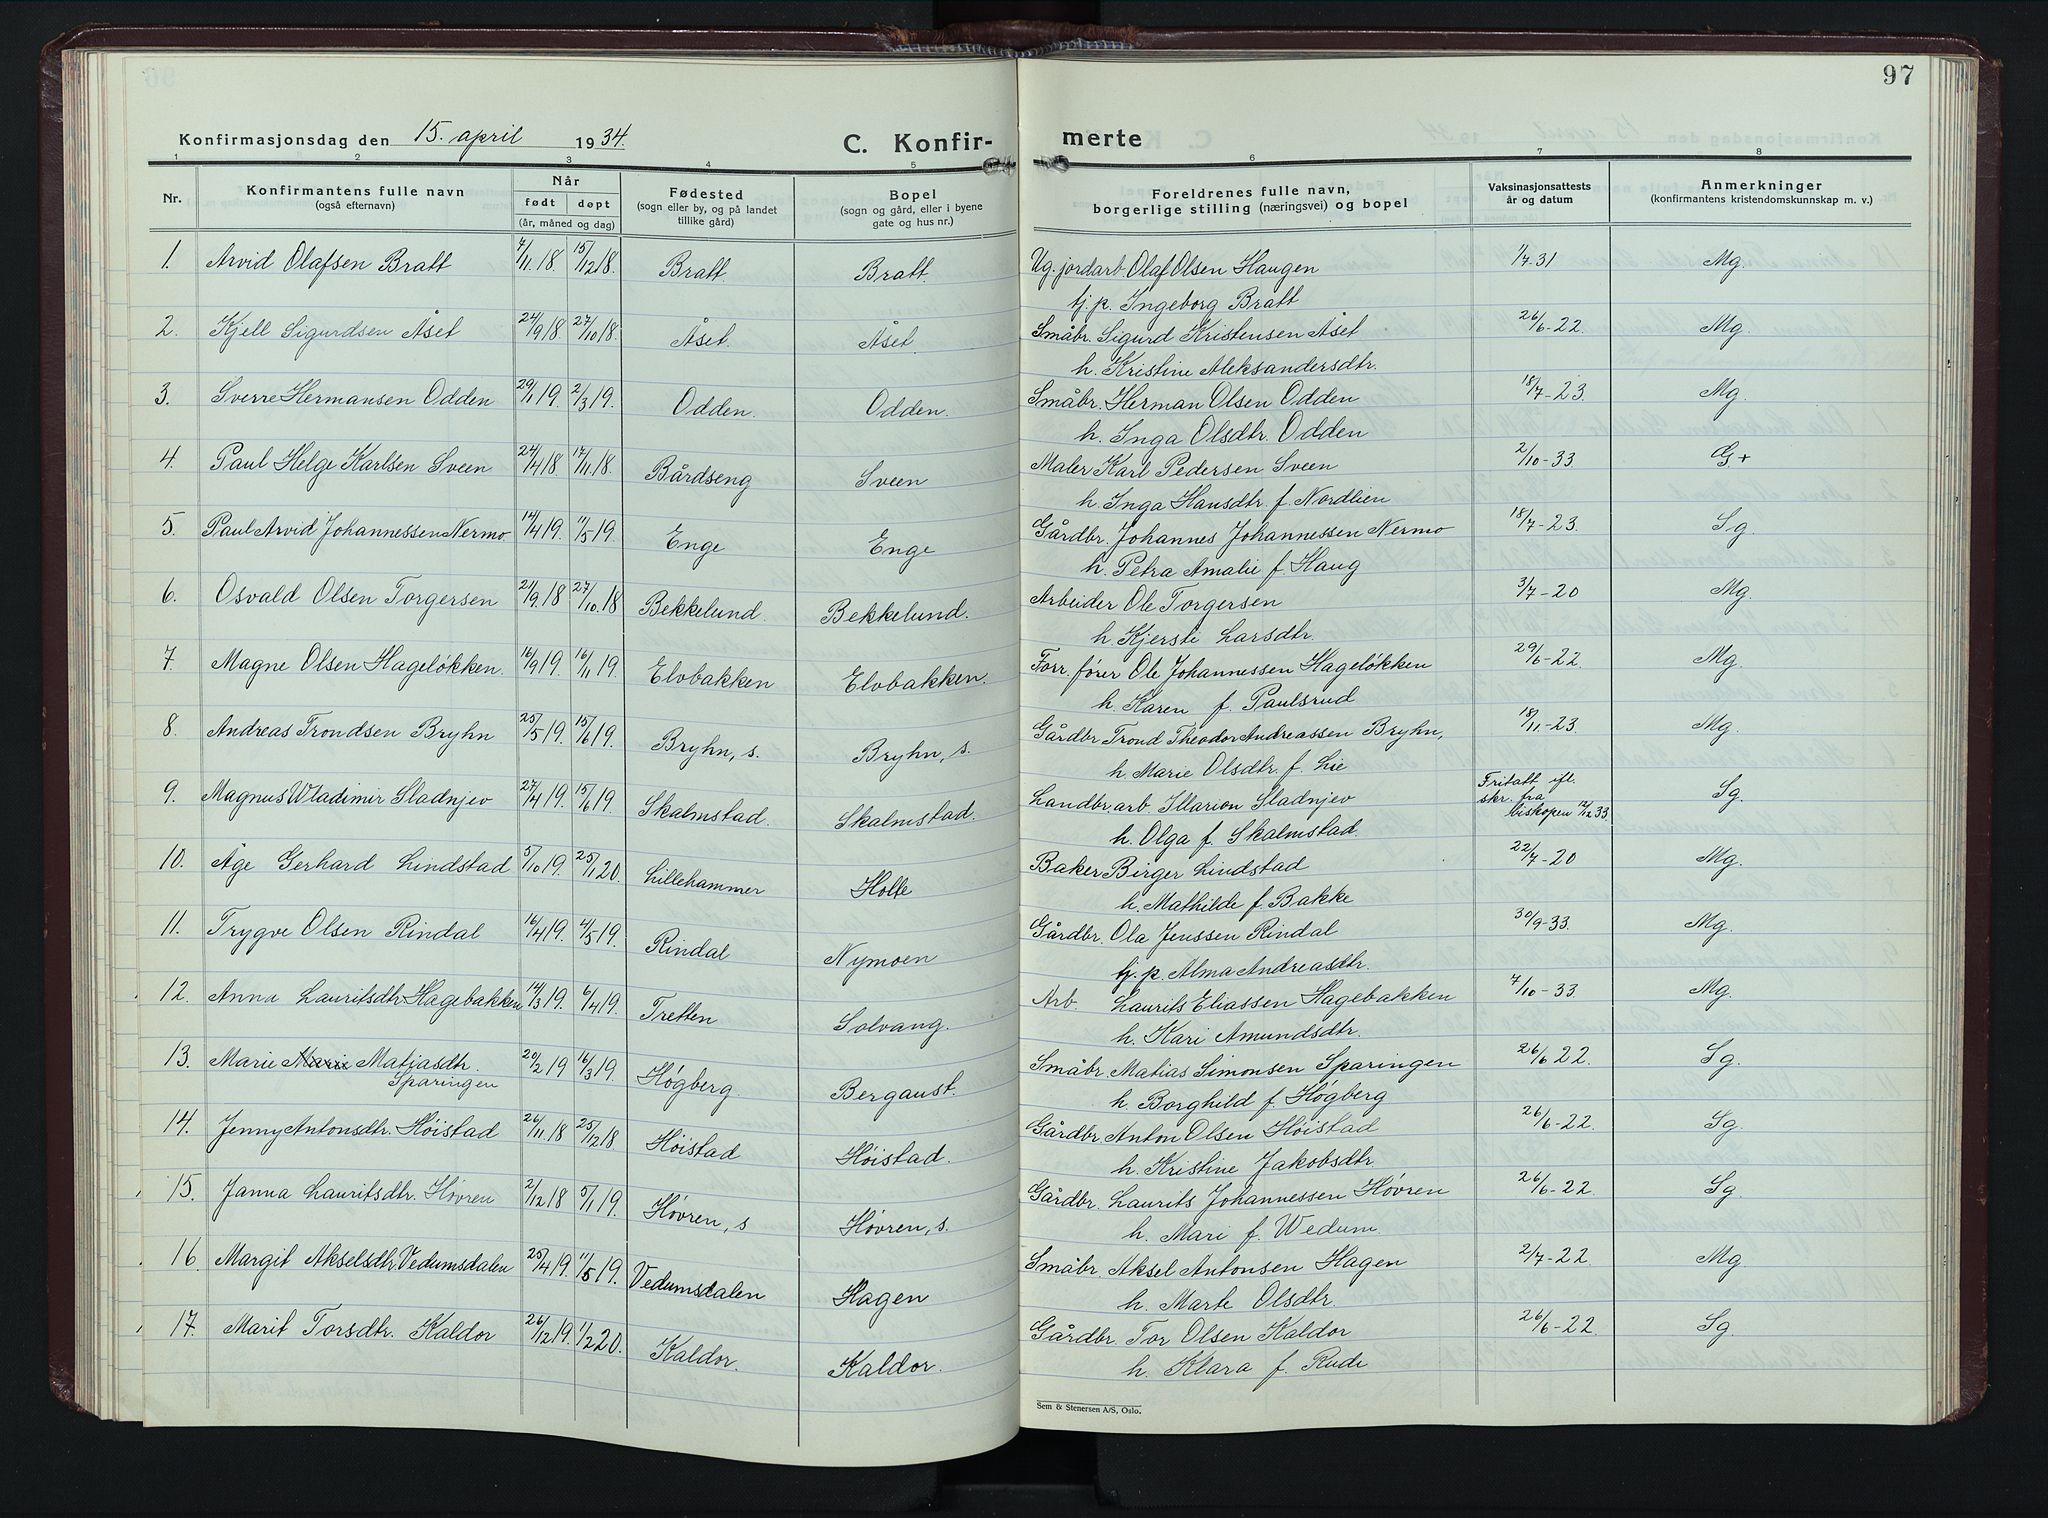 97
Konfirmasjonsdag den 15. april 1934.
C. Konfirmerte
1 2 3 4 5 6 7 8
Nr. Konfirmantens fulle navn (også efternavn) Når født døpt (år, måned og dag) Fødested (sogn eller by, og på landet tillike gård) Bopel (sogn og gård, eller i byene gate og hus nr.) Foreldrenes fulle navn, borgerlige stilling (næringsvei) og bopel Vaksinasjonsattests år og datum Anmerkninger (konfirmantens kristendomskunnskap m. v.)
1. Arvid Olafsen Bratt 7/11 18. 15/12 18. Bratt. Bratt. Ug. jordarb. Olaf Olsen Haugen 1/7-31 Mg.
tj. p. Ingeborg Bratt
2. Kjell Sigurdsen Åset 24/9 18. 27/10 18. Åset. Åset Småbr. Sigurd Kristensen Åset 26/6-22. Mg.
h. Kristine Aleksandersdtr.
3. Sverre Hermansen Odden 29/1 19. 2/3 19. Odden. Odden. Småbr. Herman Olsen Odden 18/7-23. Mg.
h. Inga Olsdtr. Odden
4. Paul Helge Karlsen Sveen 24/4 18 17/11 18. Bårdseng Sveen Maler Karl Pedersen Sveen 2/10-33. G+
h. Inga Hansdtr. f. Nordlien
5. Paul Arvid Johannessen Nermo 14/4 19. 11/5 19. Enge Enge Gårdbr. Johannes Johannessen Nermo 18/7-23. Sg.
h. Petra Amalie f. Haug
6. Osvald Olsen Torgersen 21/9 18 27/10 18 Bekkelund. Bekkelund. Arbeider Ole Torgersen 3/7-20 Mg.
h. Kjersti Larsdtr.
7. Magne Olsen Hageløkken. 16/9 19. 16/11 19. Elvbakken Elvbakken. Forr.fører Ole Johannessen Hageløkken 29/6-22. Mg.
h. Karen f. Paulsrud
8. Andreas Trondsen Bryhn 25/5 19. 15/6 19. Bryhn, s. Bryhn, s. Gårdbr. Trond Theodor Andreassen Bryhn, 18/11-23. Mg.
h. Marie Olsdtr. f. Lie
9. Magnus Wladimir Sladnjev 27/4 19. 15/6 19. Skalmstad. Skalmstad. Landbr.arb Illarion Sladnjev Fritatt efl. skr. fra biskopen 12/12 33. Sg.
h. Olga f. Skalmstad.
10. Åge Gerhard Lindstad 5/10 19. 25/1 20. Lillehammer Holle Baker Birger Lindstad 22/7-20 Mg.
h. Mathilde f. Bakke
11. Trygve Olsen Rindal 16/4 19. 4/5 19. Rindal Nymoen Gårdbr. Ola Jenssen Rindal 30/9-33. Mg.
tj. p. Alma Andreasdtr.
12. Anna Lauritsdtr. Hagebakken 14/3 19. 6/4 19. Tretten Solvang. Arb. Laurits Eliassen Hagebakken 7/10-33. Mg.
h. Kari Amundsdtr.
13. Marie Marie Matiasdtr. Sparingen 20/2 19 16/3 19. Høgberg. Bergaust. Småbr. Matias Simonsen Sparingen 26/6 22. Sg.
h. Borghild f. Høgberg
14. Jenny Antonsdtr. Høistad 26/11 18 25/12 18. Høistad Høistad. Gårdbr. Anton Olsen Høistad 26/6-22. Sg.
h. Kristine Jakobsdtr.
15. Janna Lauritsdtr. Høvren 2/12 18 5/1 19. Høvren, s Høvren, s. Gårdbr. Laurits Johannessen Høvren 26/6-22. Sg.
h. Mari f. Wedum.
16. Margit Akselsdtr. Vedumsdalen 25/4 19. 11/5 19. Vedumsdalen Hagen Småbr. Aksel Antonsen Hagen 2/7-22. Mg
h. Marte Olsdtr.
17. Marit Torsdtr. Kaldor 26/12 19. 1/2 20. Kaldor. Kaldor. Gårdbr. Tor Olsen Kaldor 26/6-22. Sg.
h. Klara f. Rudi
Sem & Stenersen A/S, Oslo.